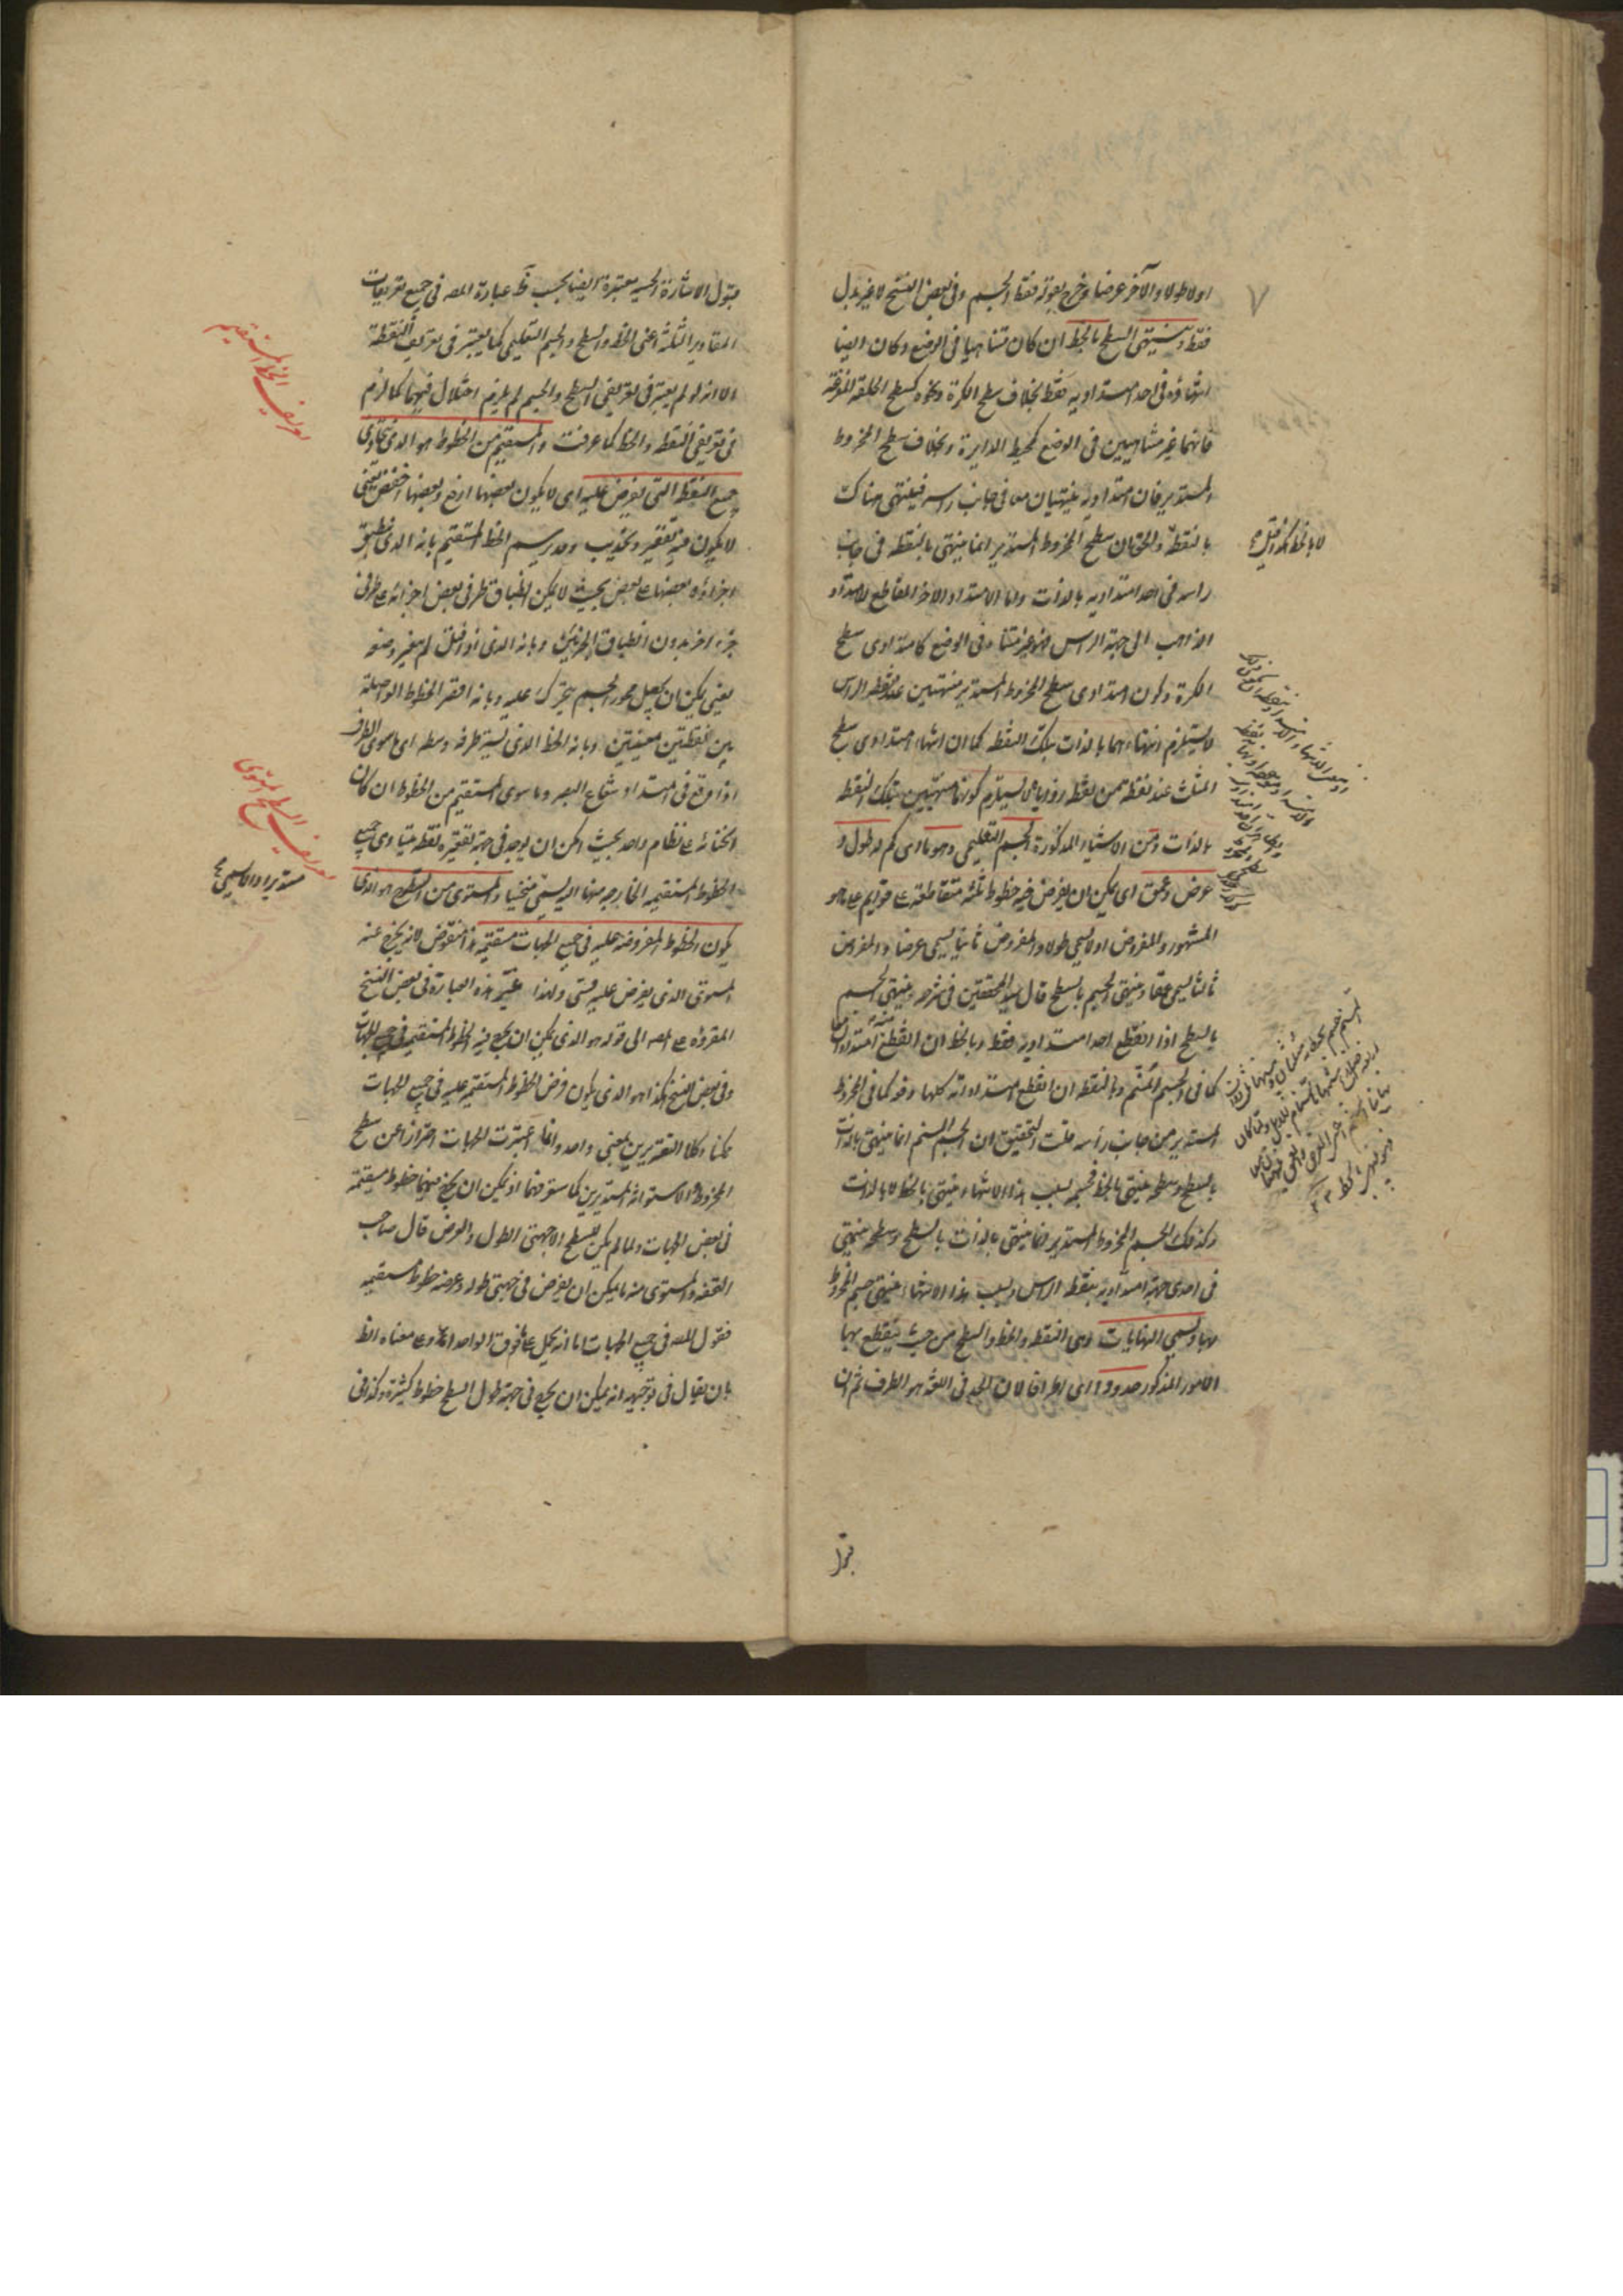 اولا طولا والآخر عرضا وخرج بقوله فقط الجسم وفى بعض النسخ لا غير بدل
فقط وينتهى السطح بالخط ان كان متناهيا فى الوضع وكان ايضا
انتهاؤه فى احد امتداديه فقط بخلاف سطح الكرة ونحوه كسطح الحلقة المفرغة
فانهما غير متناهيين فى الوضع كمحيط الدايرة وبخلاف سطح المخروط
المستدير فان امتداديه ينتهيان معا فى جانب راسه فينتهى هناك
بالنقطة والحق ان سطح المخروط المستدير انما ينتهى بالنقطة فى جانب
راسه فى احد امتداديه بالذات واما الامتداد الآخر المقاطع للامتداد
الذاهب الى جهة الراس فهو غير متناه فى الوضع كامتدادى سطح
الكرة وكون امتدادى سطح المخروط المستدير منتهيين عند نقطة الراس
لا يستلزم انتهاءهما بالذات بتلك النقطة كما ان انتهاء امتدادى سطح
المثلث عند نقطة من نقط زواياه لا يستلزم كونهما منتهيين بتلك النقطة
بالذات ومن الاشياء المذكورة الجسم التعليمى وهو ما اى كم له طول و
عرض وعمق اى يمكن ان يفرض فيه خطوط ثلثة متقاطعة على قوايم على ما هو
المشهور والمفروض اولا يسمى طولا والمفروض ثانيا يسمى عرضا والمفروض
ثالثا يسمى عمقا وينتهى الجسم بالسطح قال سيد المحققين فى شرحه وينتهى الجسم
بالسطح اذا انقطع احد امتداداته فقط وبالخط ان انقطع منه امتدادان معا
كما فى الجسم المسنم وبالنقطة ان انقطع امتداداته كلها دفعة كما فى المخروط
المستدير من جانب رأسه قلت التحقيق ان الجسم المسنم انما ينتهى بالذات
بالسطح وسطحه ينتهى بالخط فجسمه بسبب هذا الانتهاء ينتهى بالخط لا بالذات
وكذلك الجسم المخروط المستدير انما ينتهى بالذات بالسطح وسطحه ينتهى
فى احدى جهة امتداديه بنقطة الراس وبسبب هذا الانتهاء ينتهى جسم المخروط
بها ويسمى النهايات وهى النقطة والخط والسطح من حيث ينقطع بها
الامور المذكورة حدودا اى اطرافا لان الحد فى اللغة هو الطرف ثم ان
٧
لا بالخط كما قيل
قبول
قبول الاشارة الحسية معتبرة ايضا بحسب عبارة المصه فى جميع تعريفات
المقادير الثلثة اعنى الخط والسطح والجسم التعليمى كما يعتبر فى تعريف النقطة
الا انه لو لم يعتبر فى تعريفى السطح والجسم لم يلزم اختلال فيهما كما لزم
فى تعريفى النقطة والخط كما عرفت والمستقيم من الخطوط هو الذى يحاذى
جميع النقط التى يفرض عليه اى لا يكون بعضها ارفع وبعضها اخفض يعنى
لا يكون فيه تقعير وتحديب وقد يرسم الخط المستقيم بانه الذى ينطبق
اجزاؤه بعضها على بعض بحيث لا يمكن انطباق طرفى بعض اجزائه على طرفى
جزء آخر بدون انطباق الجزئين وبانه الذى اذا فتل لم يتغير وضعه
يعنى يمكن ان يجعل محور الجسم يتحرك عليه وبانه اقصر الخطوط الواصلة
بين نقطتين معينتين وبانه الخط الذى يستر طرفه وسطه اى ما سوى الطرف
اذا وقع فى امتداد شعاع البصر وما سوى المستقيم من الخطوط ان كان
انحناؤه على نظام واحد بحيث امكن ان يوجد فى جهة تقعيره نقطة يتساوى جميع
الخطوط المستقيمة الخارجة منها اليه يسمى منحنيا والمستوى من السطوح هو الذى
يكون الخطوط المفروضة عليه فى جميع الجهات مستقيمة هذا منقوض لانه يخرج عنه
المستوى الذى يفرض عليه قسى ولهذا غير هذه العبارة فى بعض النسخ
المقروة على المصه الى قوله هو الذى يمكن ان يخرج فيه الخطوط المستقيمة فى جميع الجهات
وفى بعض النسخ هكذا هو الذى يكون فرض الخطوط المستقيمة عليه فى جميع الجهات
ممكنا وكلا التقديرين بمعنى واحد وانما اعتبرت الجهات احترازا عن سطح
المخروط والاسطوانة المستديرين كما ستعرفهما اذ يمكن ان يخرج فيهما خطوط مستقيمة
فى بعض الجهات ولما لم يكن للسطح الا جهتى الطول والعرض قال صاحب
التحفة والمستوى منه ما يمكن ان يفرض فى جهتى طوله وعرضه خطوط مستقيمة
فقول المصه فى جميع الجهات اما انه يحمل على ما فوق الواحد او على معناه الظ
بان يقال فى توجيهه انه يمكن ان يخرج فى جهة طول السطح خطوط كثيرة وكذا فى
تعريف الخط المستقيم
تعريف السطح المستوى
مستديرا والا يسمى